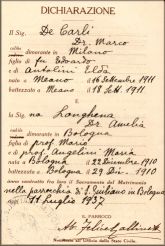 DICHIARAZIONE
Il Sig. De Carli
Dr. Marco
dimorante in Milano
figlio di fu Edoardo
e di Antolini Elda
nato a Meano il 16 Settembre 1911
battezzato a Meano il 18 Sett. 1911
E
la Sig. na Longhena
Dr. Amelia
dimorante in Bologna
figlia di prof. Mario
e di prof. Angelini Maria
nata a Bologna il 22 Dicembre 1910
battezzata a Bologna il 29 Dic. 1910
hanno contratto fra loro il Sacramento del Matrimonio
nella parrocchia di S. Giuliano in Bologna
oggi 11 Luglio 1937
IL PARROCO